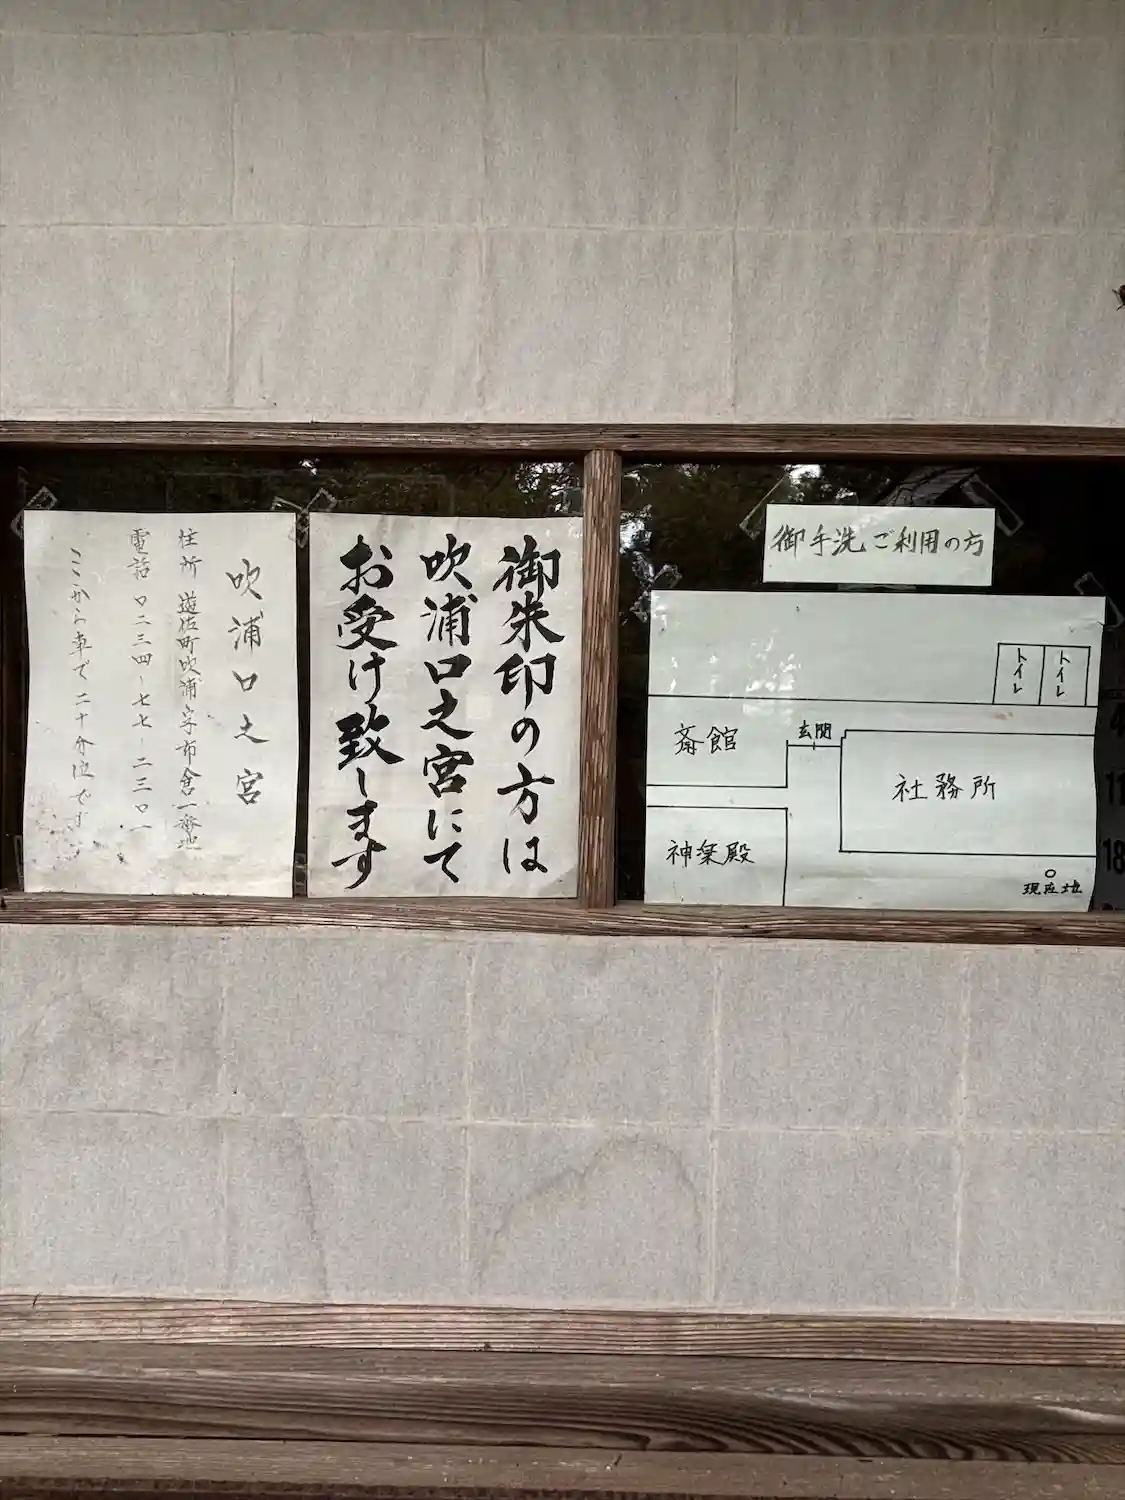 御朱印の方は
吹浦口之宮にて
お受け致します
吹浦口之宮
住所 遊佐町吹浦字布倉一番地
電話 〇二三四-七七-二三〇一
ここから車で二十分位です
御手洗ご利用の方
トイレ
トイレ
斎館
玄関
社務所
神楽殿
現在地
18